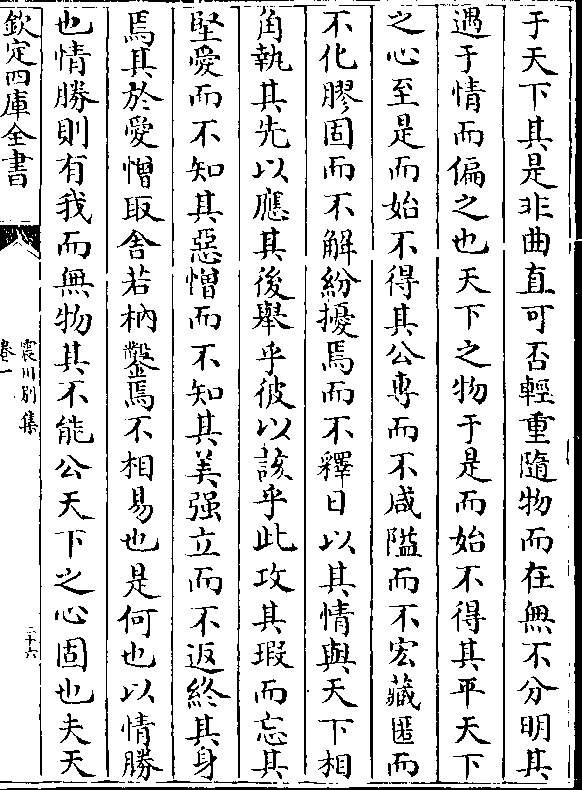 于天下其是非曲直可否輕重隨物而在無不分明其
遇于情而偏之也天下之物于是而始不得其平天下
之心至是而始不得其公専而不咸隘而不宏藏匿而
不化膠固而不解紛擾焉而不釋日以其情與天下相
角執其先以應其後舉乎彼以該乎此攻其瑕而忘其
堅愛而不知其惡憎而不知其美强立而不返終其身
焉其於愛憎取舍若枘鑿焉不相易也是何也以情勝
也情勝則有我而無物其不能公天下之心固也夫天
欽定四庫全書
震川別集
卷一
二十六